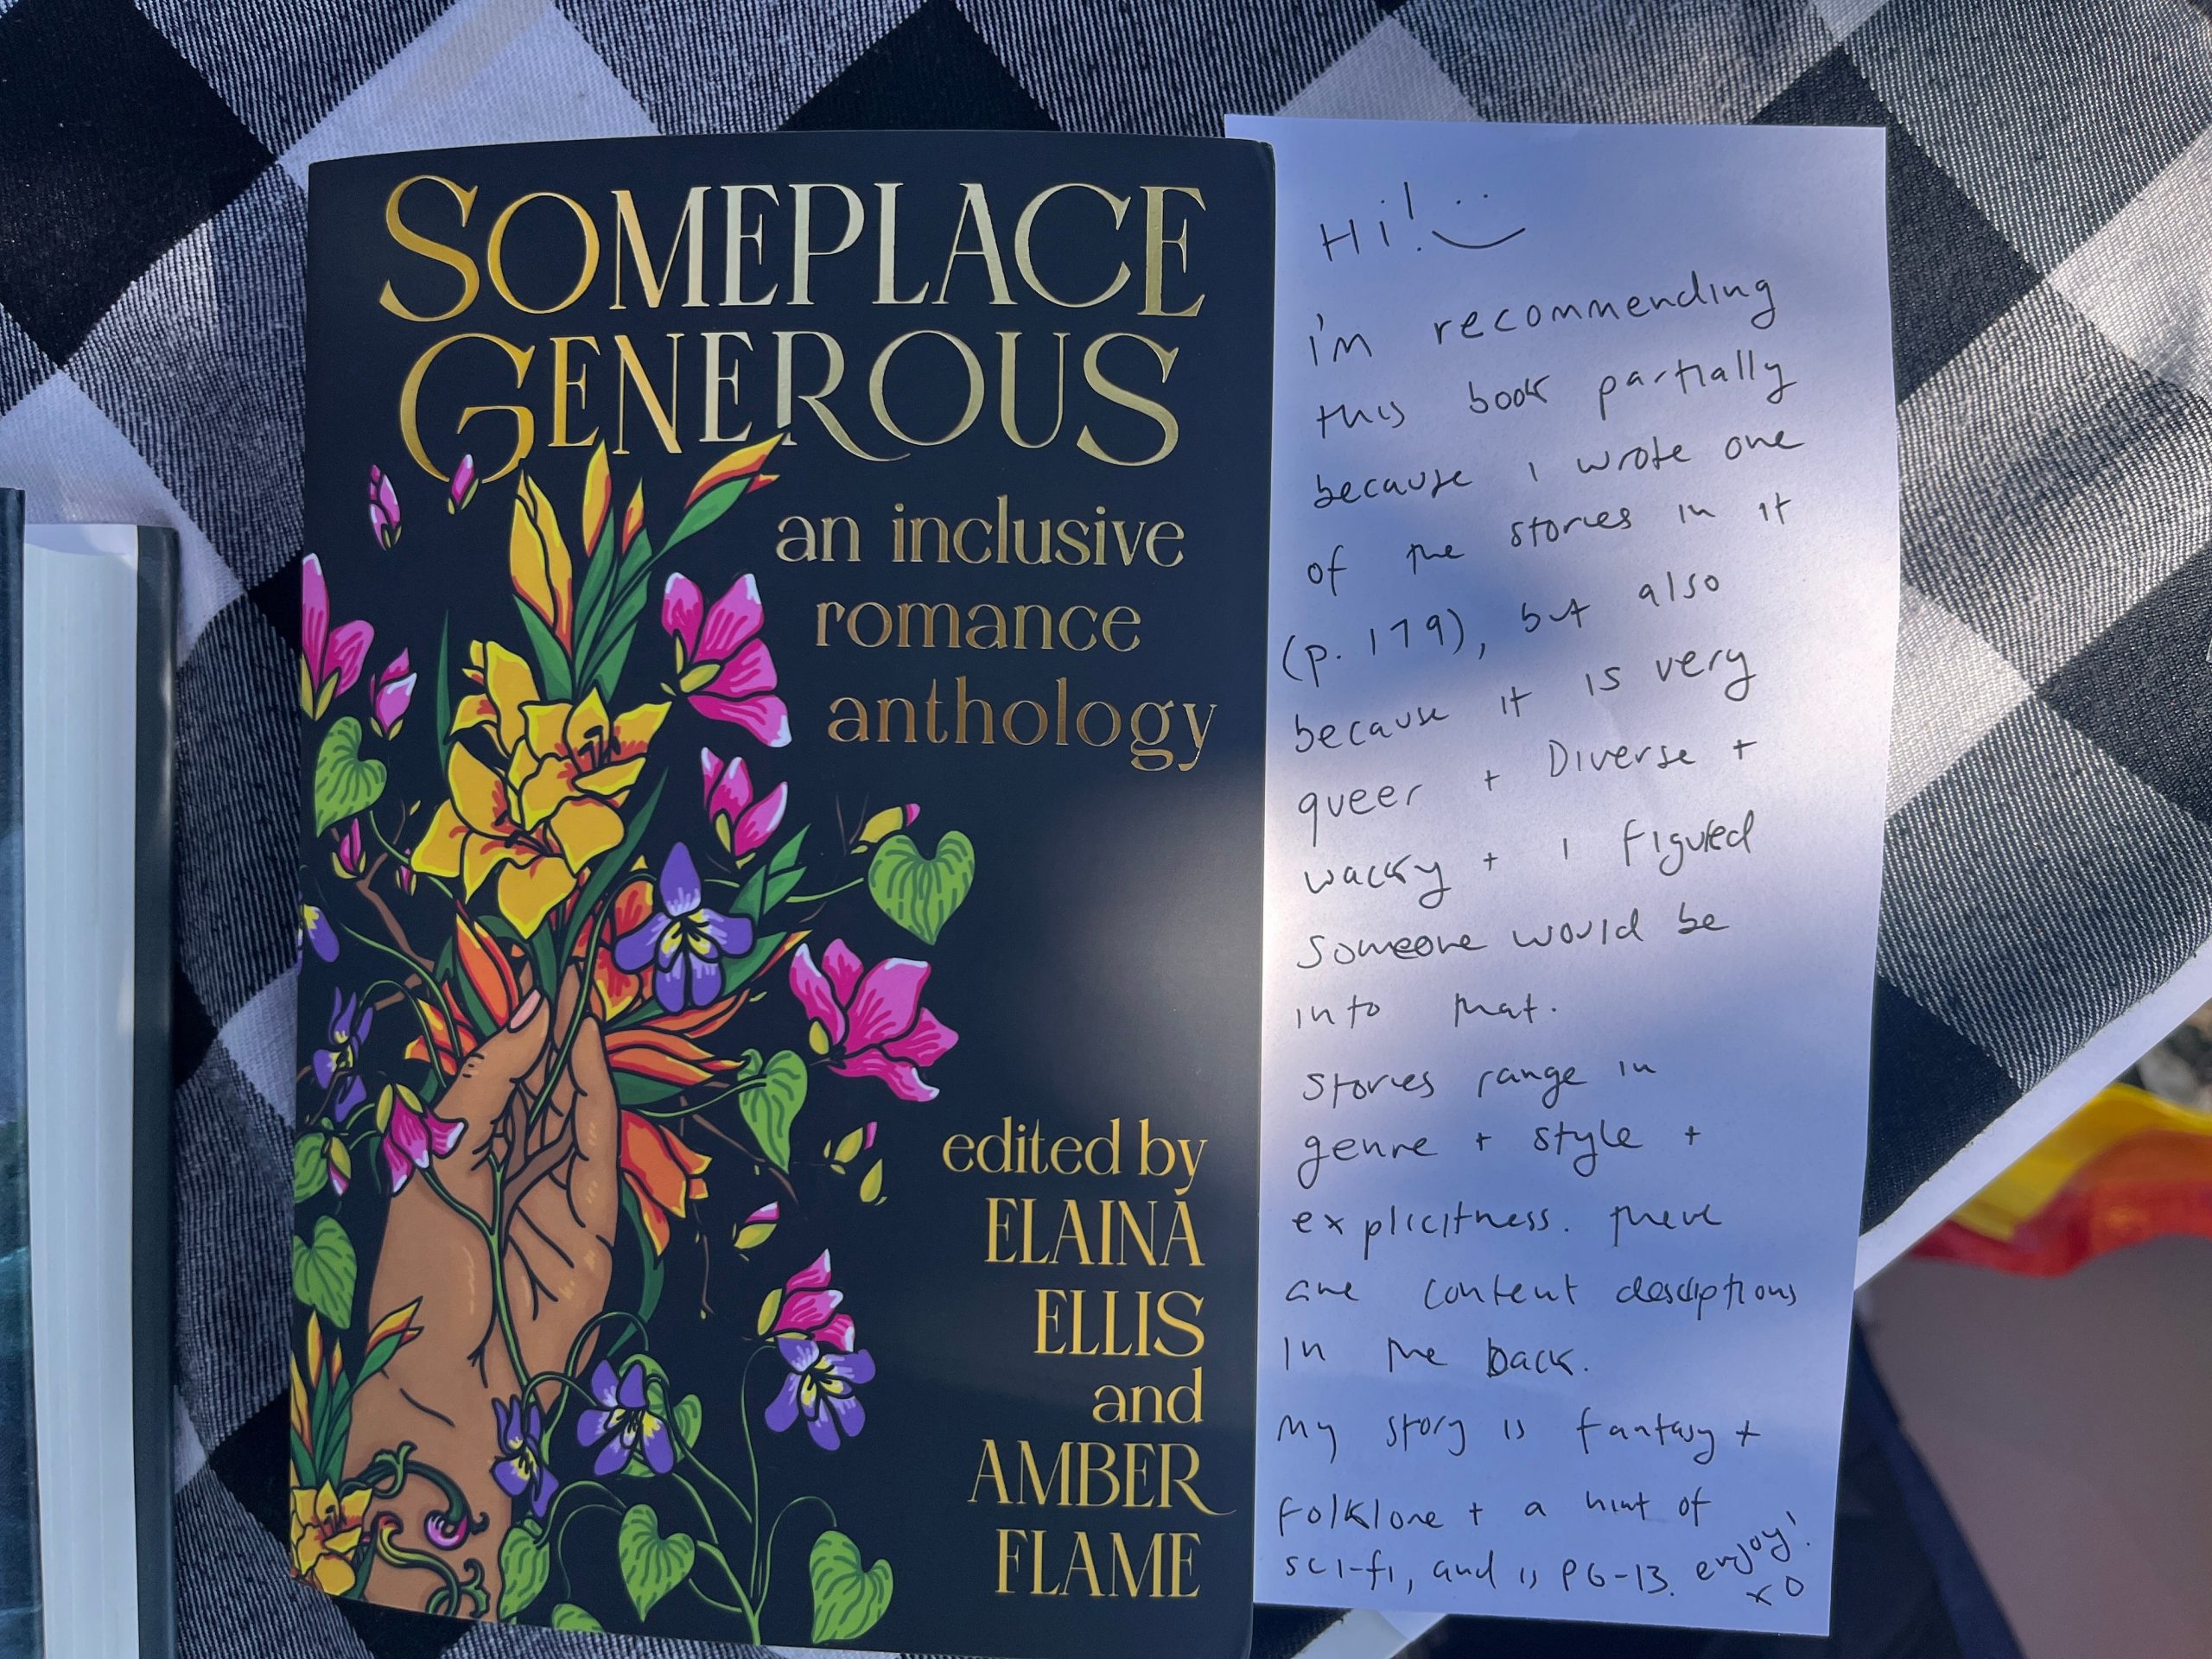 SOMEPLACE
GENEROUS
an inclusive
romance
anthology
edited by
ELAINA
ELLIS
and
AMBER
FLAME
Hi!
i'm recommending
this book partially
because i wrote one
of the stories in it
(p. 179), but also
because it is very
queer + Diverse +
wacky + i figured
someone would be
into that.
stories range in
genre + style +
explicitness. there
are content descriptions
in the back.
my story is fantasy +
folklore + a hint of
sci-fi, and is PG-13. enjoy!
xo